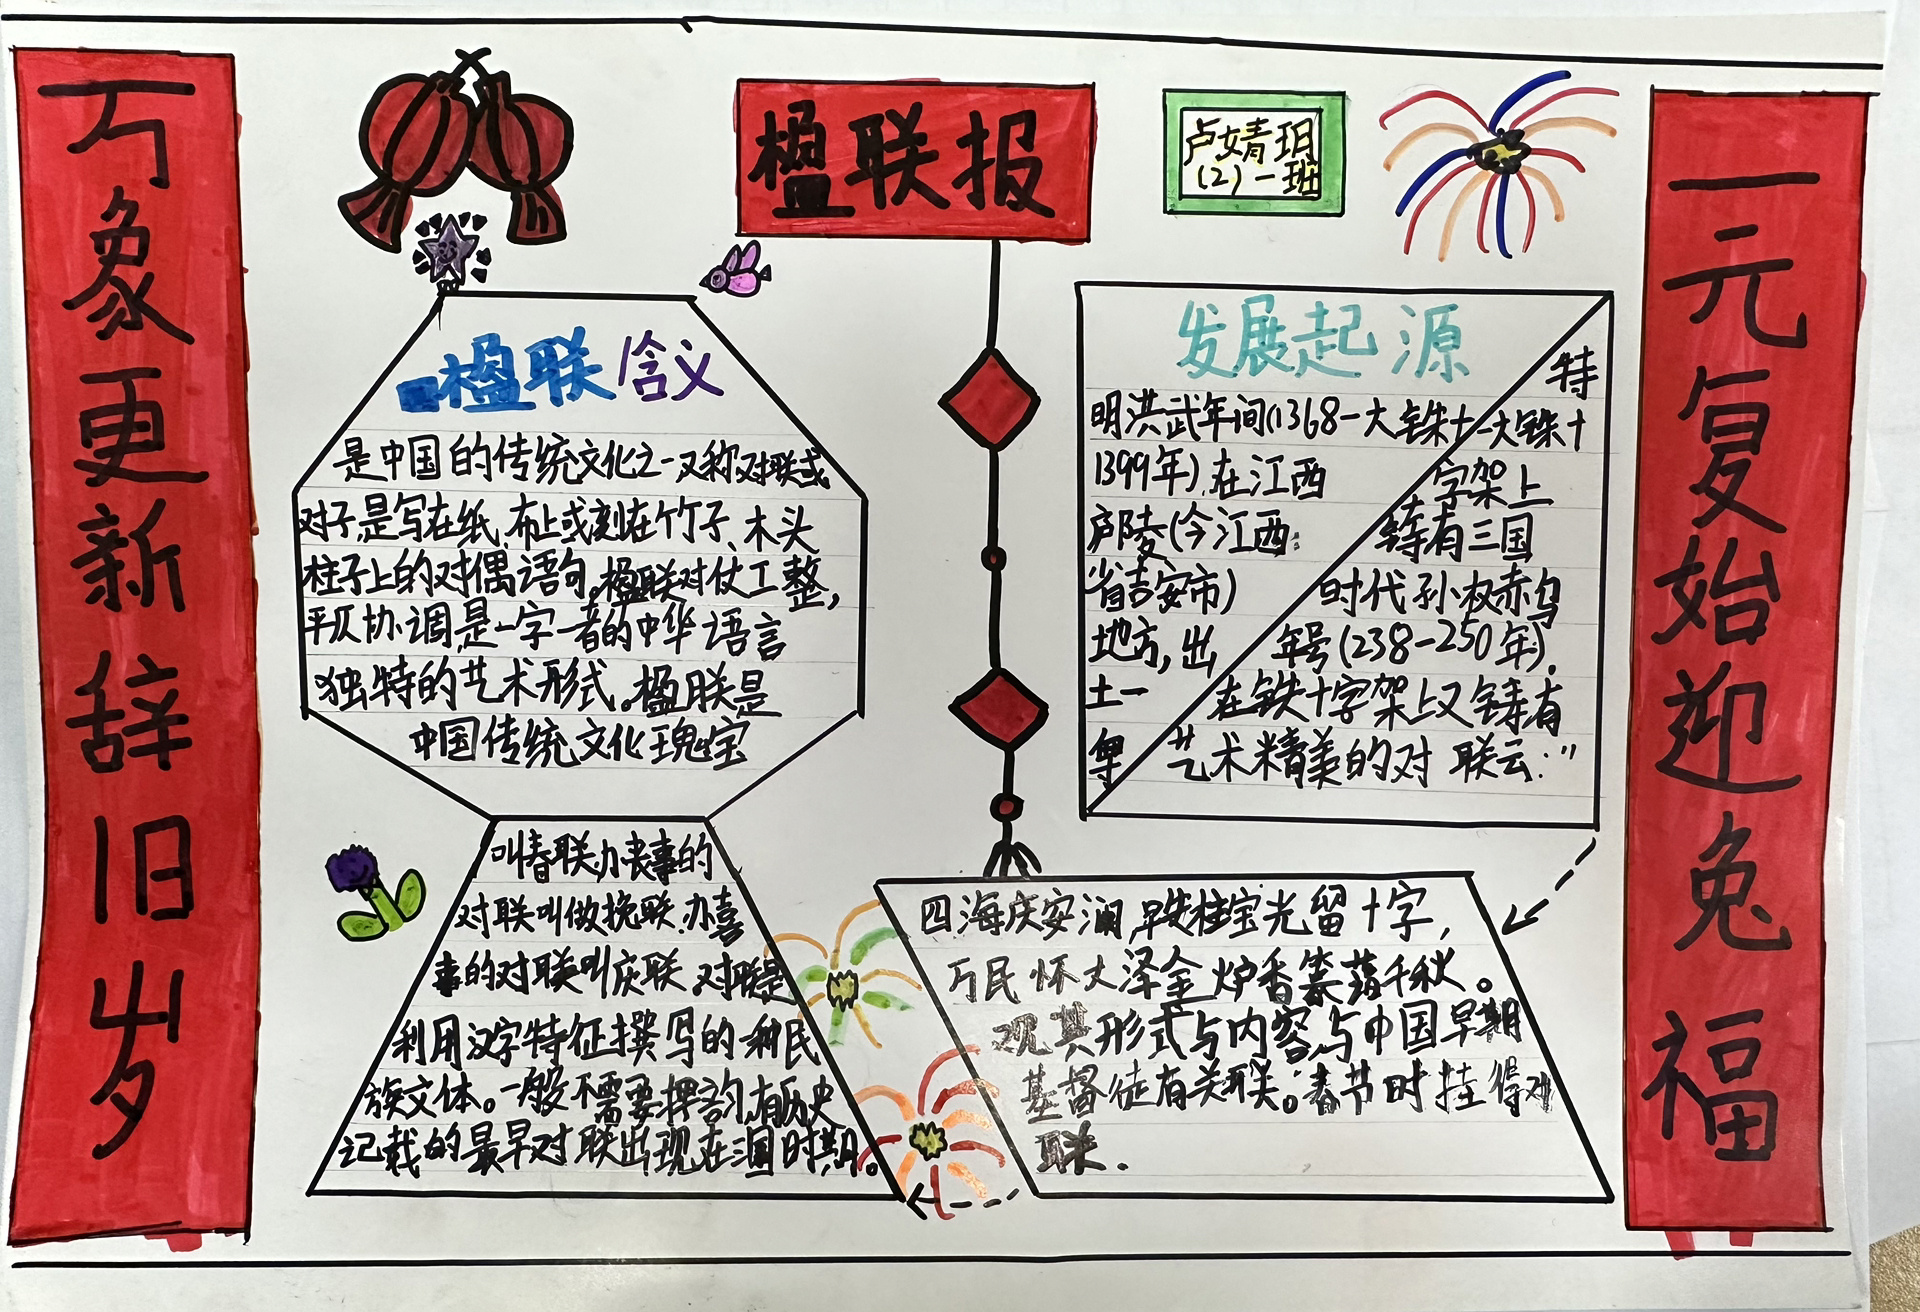 万象更新辞旧岁
楹联报
卢婧玥
(2)一班
一元复始迎兔福
楹联含义
是中国的传统文化之一又称对联或
对子,是写在纸、布上或刻在竹子、木头
柱子上的对偶语句,楹联对仗工整,
平仄协调,是一字一音的中华语言
独特的艺术形式。楹联是
中国传统文化瑰宝
发展起源
明洪武年间(1368-
1399年),在江西
庐陵(今江西
省吉安市)
地方,出
土一
特
大铁十
字架上
铸有三国
时代孙权赤乌
年号(238-250年),
在铁十字架上又铸有
艺术精美的对联云:"
四海庆安澜,早安柱宝光留十字,
万民怀大泽金炉香篆蔼千秋。
观其形式与内容,与中国早期
基督徒有关联。春节时挂得对
联.
叫春联,办丧事的
对联叫做挽联,办喜
事的对联叫庆联,对联是
利用汉字特征撰写的一种民
族文体。一般不需要押韵,有历史
记载的最早对联出现在三国时期。